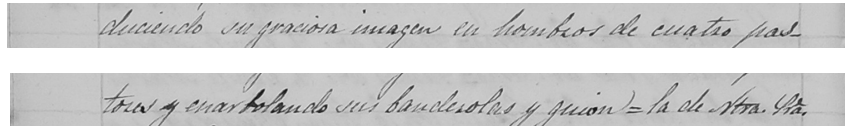 duciendo su graciosa imagen en hombros de cuatro pas-
tores y enarbolando sus banderolas y guion) = la de Ntra. Sra.